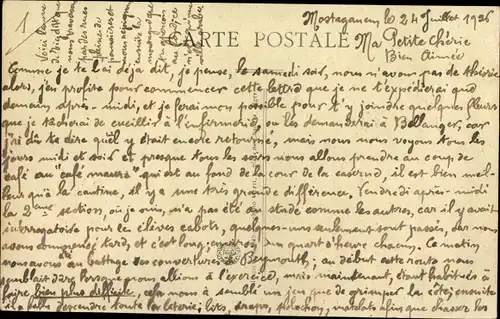 Mostaganem, le 24 Juillet 1926
CARTE POSTALE
Ma Petite Chérie
Bien Aimée
Comme je te l'ai déjà dit, je pense, le samedi soir, nous n'avons pas de théorie
alors, j'en profite pour commencer cette lettre que je ne t'expédierai que
demain après-midi, et je ferai mon possible pour t'y joindre quelques fleurs
que je tâcherai de cueillir à l'infirmerie, ou les demanderai à Bellanger, car
j'ai dû te dire qu'il y était encore retourné, mais nous nous voyons tous les
jours midi et soir et presque tous les soirs nous allons prendre un coup de
café au café maure qui est au fond de la cour de la caserne, il est bien meil-
leur qu'à la cantine, il y a une très grande différence. Vendredi après-midi
la 2ème section, où je suis, n'a pas été au stade comme les autres, car il y avait
interrogatoire pour les élèves cabots, quelques-uns seulement sont passés, car nous
avons commencé tard, et c'est long; environ un quart d'heure chacun. Ce matin
nous avons au battage des couvertures à Beymouth; au début cette route nous
semblait dure lorsque nous allions à l'exercice, mais maintenant, étant habitués à
faire bien plus difficile, cela nous a semblé un jeu que de grimper la côte; ensuite
il a fallu descendre toute la literie; lits, draps, polochon, matelas afin que chasser les